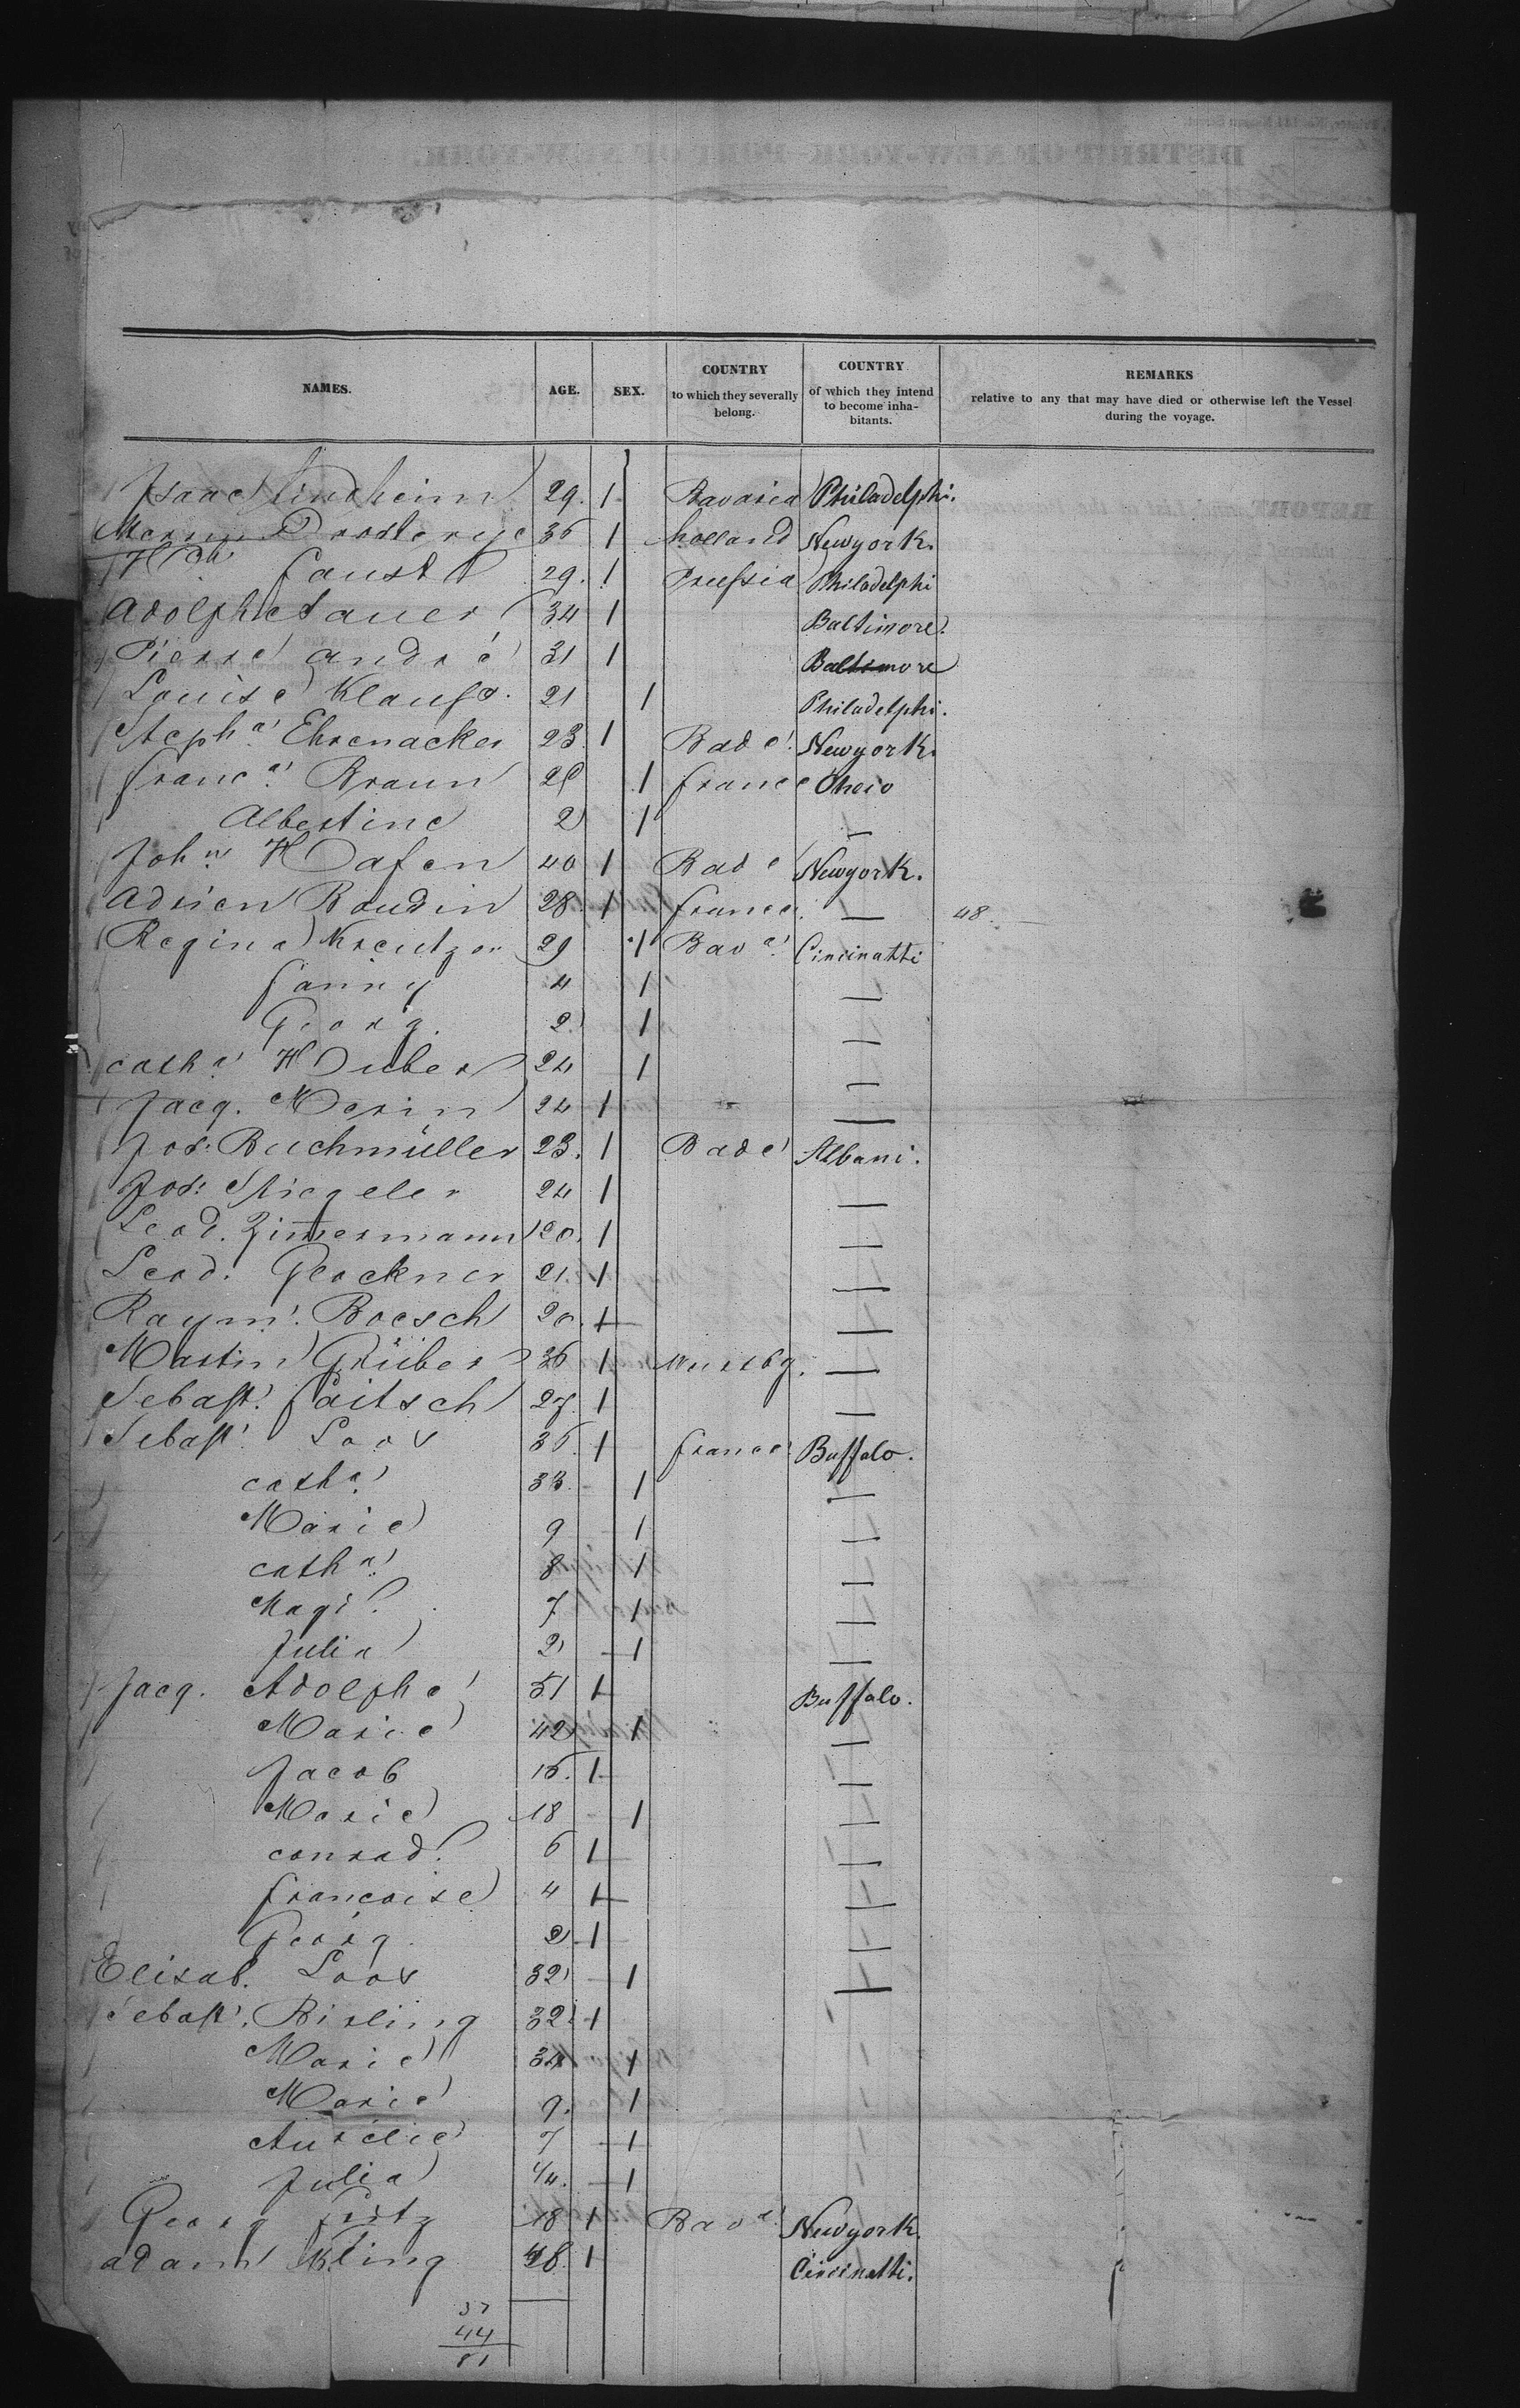 DISTRICT OF NEW-YORK—PORT OF NEW-YORK.
NAMES. AGE. SEX. COUNTRY to which they severally belong. COUNTRY of which they intend to become inhabitants. REMARKS relative to any that may have died or otherwise left the Vessel during the voyage.
Isaac Lindheim 29. 1 Bavaria Philadelphi.
36 1 holland Newyork.
Faust 29. 1 Prussia Philadelphi
Adolphe Sauer 34 1 Baltimore.
Pierre André 31 1 Baltimore
Louise Klauss. 21 1 Philadelphi.
Steph.a Ehrenacker 23 1 Bade. Newyork.
Franc.a Braun 1 France Oheio
Albertine 2 1 —
Joh.n Hafen 40 1 Bade Newyork.
Adrien Baudin 28 1 France. — 48.
Regina Kreutzer 29 1 Bav.a Cincinatti
Fanny 4 1 —
Georg. 2 1 —
cath.a Huber 24 1 —
Jacq. Merin 24 1 —
Jos: Buchmüller 23. 1 Bade Albani.
Jos: Stiegeler 24 1 —
Leod. Zimermann 20. 1 —
Leod. Glockner 21. 1 —
Raym. Boesch 20. 1 —
Martin Grüber 36 1 Wurtbg. —
Sebast. Faitsch 27. 1 —
Sebast. Loos 36. 1 France Buffalo.
cath.a 33. 1 —
Marie 9 1 —
cath.a 8 1 —
Magd. 7 1 —
Julia 2 1 —
Jacq. Adolphe 51 1 Buffalo.
Marie 42 1 —
Jacob 16. 1 —
Marie 18 1 —
conrad. 6 1 —
Françoise 4 1 —
Georg 2 1 —
Elisab. Loos 32 1 —
Sebast. Birling 32 1
Marie 34 1
Marie 9. 1
Aurelie 7 1
Julia 1/4. 1
Georg Fritz 18 1 Bav.a Newyork.
adam Kling 28. 1 Cincinatti.
37
44
81